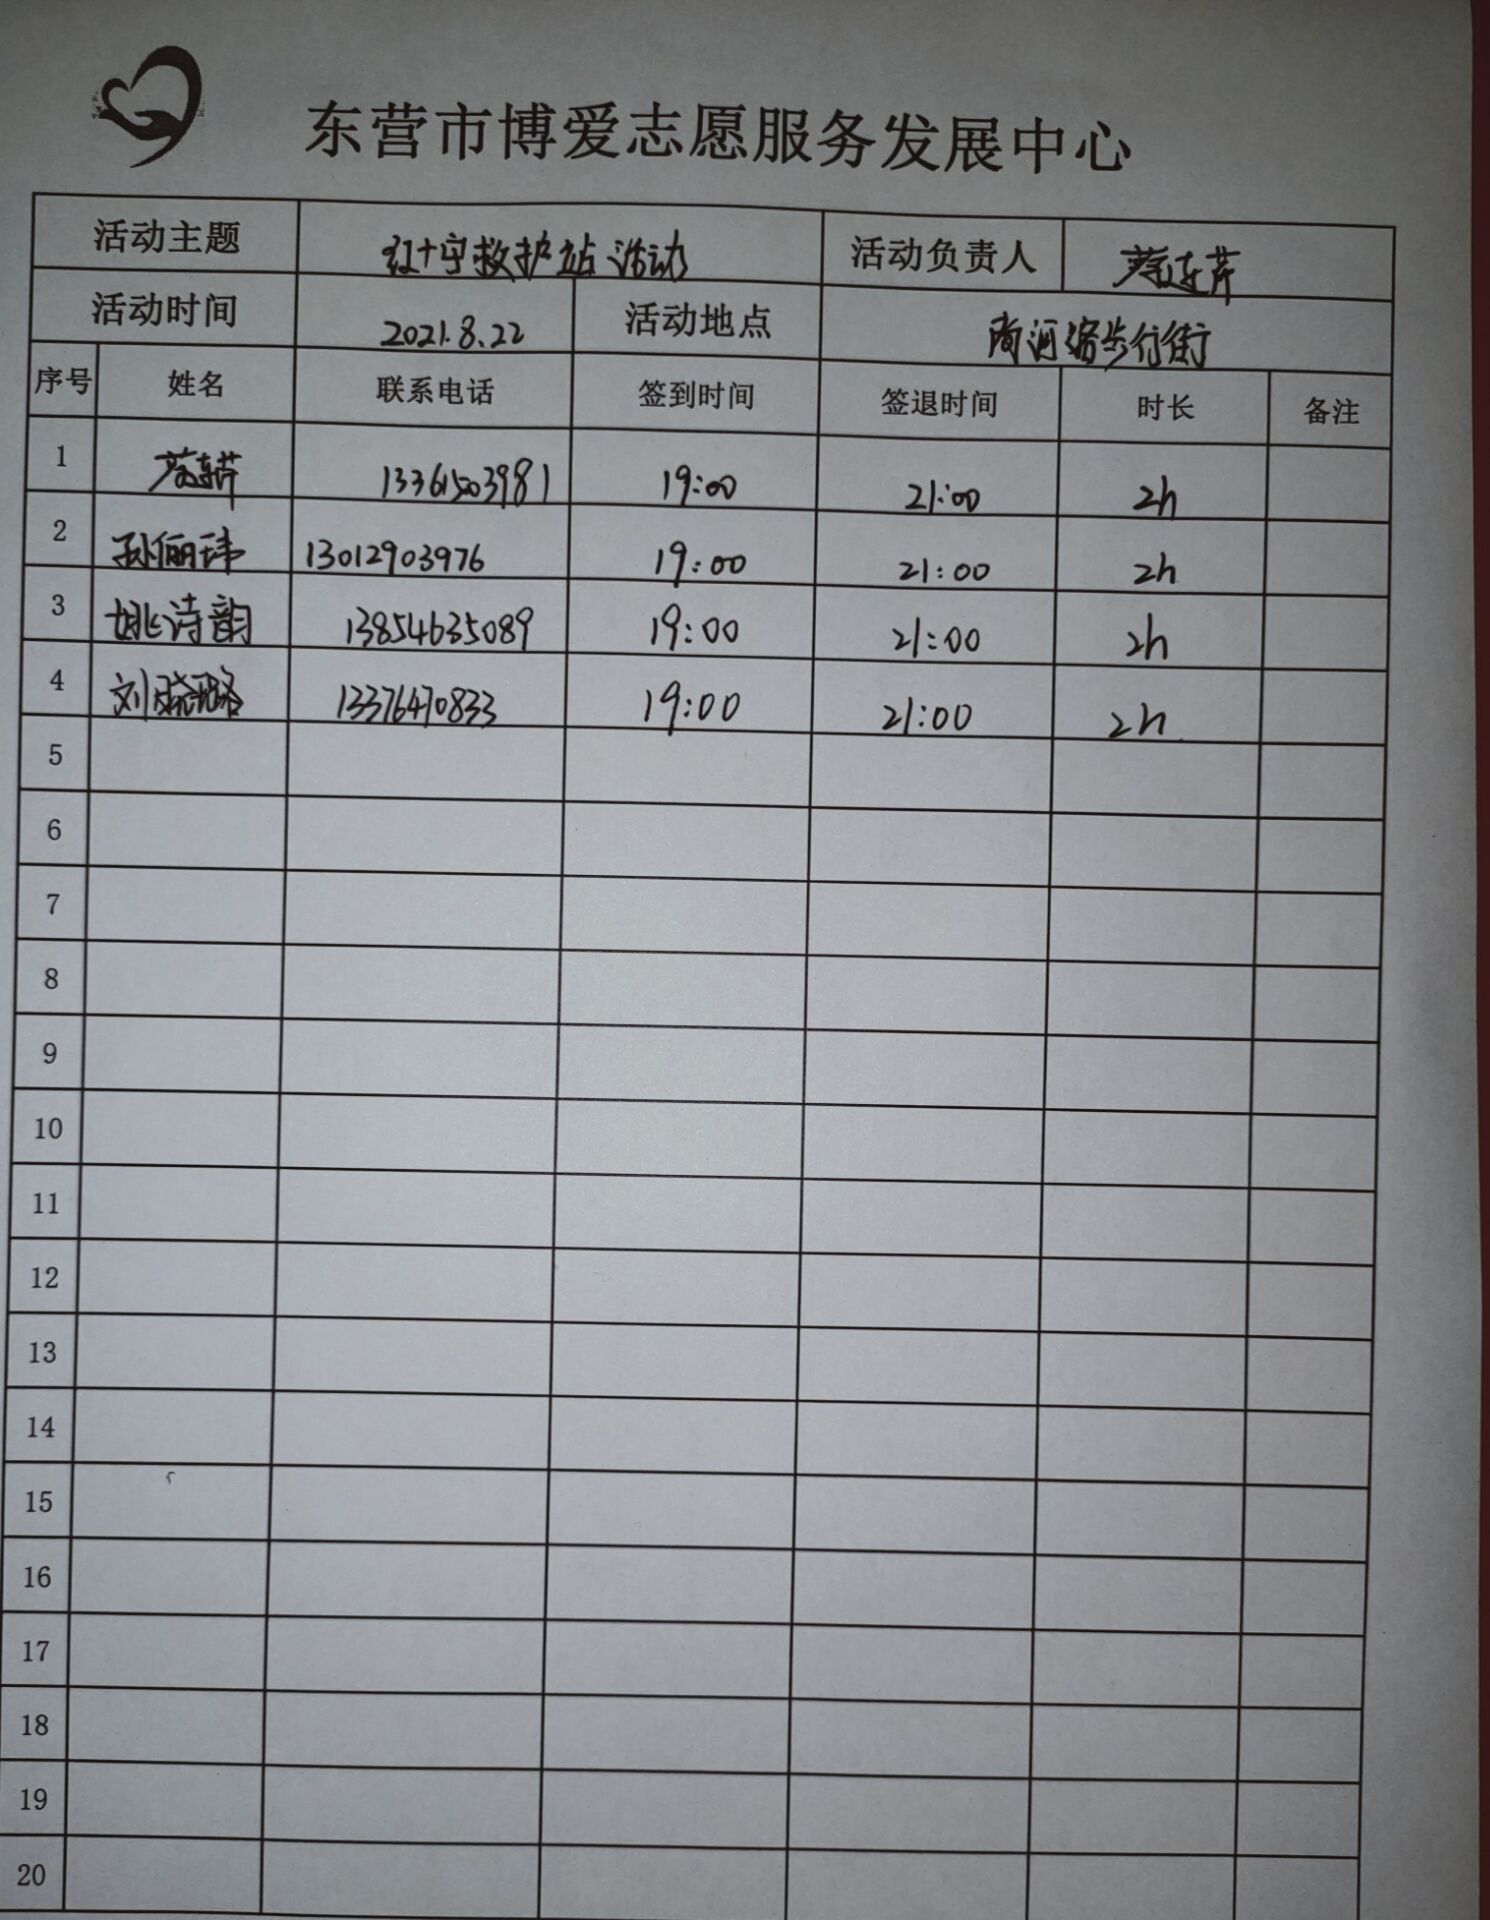 东营市博爱志愿服务发展中心
活动主题 红十字救护站活动 活动负责人
活动时间 2021.8.22 活动地点 步行街
序号 姓名 联系电话 签到时间 签退时间 时长 备注
1 13361503981 19:00 21:00 2h
2 孙俪玮 13012903976 19:00 21:00 2h
3 姚诗韵 13854635089 19:00 21:00 2h
4 刘晓璐 13376470833 19:00 21:00 2h
5
6
7
8
9
10
11
12
13
14
15
16
17
18
19
20